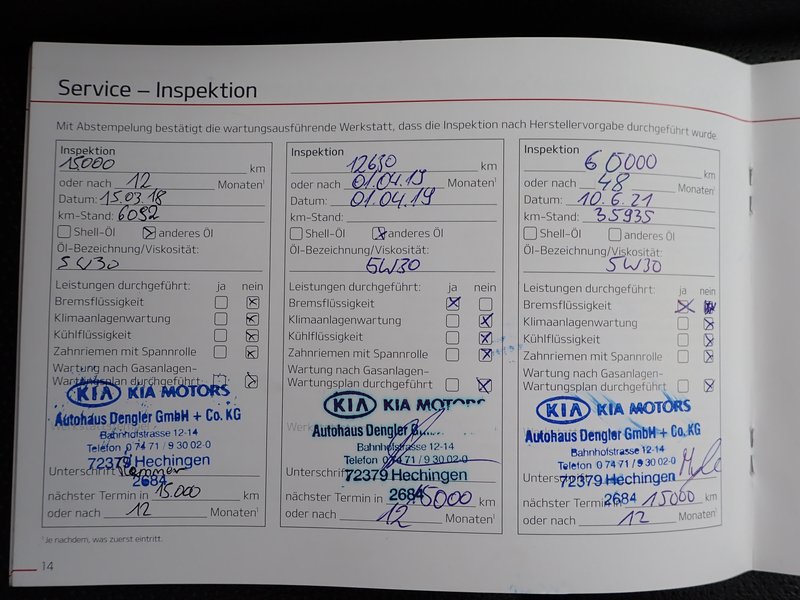 Service – Inspektion
Mit Abstempelung bestätigt die wartungsausführende Werkstatt, dass die Inspektion nach Herstellervorgabe durchgeführt wurde.
Inspektion
15000 km
oder nach 12 Monaten¹
Datum: 15.03.18
km-Stand: 6092
Shell-Öl anderes Öl
Öl-Bezeichnung/Viskosität:
5W30
Leistungen durchgeführt: ja nein
Bremsflüssigkeit
Klimaanlagenwartung
Kühlflüssigkeit
Zahnriemen mit Spannrolle
Wartung nach Gasanlagen-
Wartungsplan durchgeführt
KIA KIA MOTORS
Autohaus Dengler GmbH + Co. KG
Bahnhofstrasse 12-14
Telefon 0 74 71 / 9 30 02-0
72379 Hechingen
Unterschrift
2684
nächster Termin in 15.000 km
oder nach 12 Monaten¹
Inspektion
12630 km
oder nach 01.04.19 Monaten¹
Datum: 01.04.19
km-Stand:
Shell-Öl anderes Öl
Öl-Bezeichnung/Viskosität:
5W30
Leistungen durchgeführt: ja nein
Bremsflüssigkeit
Klimaanlagenwartung
Kühlflüssigkeit
Zahnriemen mit Spannrolle
Wartung nach Gasanlagen-
Wartungsplan durchgeführt
KIA KIA MOTORS
Autohaus Dengler
Bahnhofstrasse 12-14
Telefon 0 74 71 / 9 30 02-0
Unterschrift
72379 Hechingen
2684
nächster Termin in 15000 km
oder nach 12 Monaten¹
Inspektion
60000 km
oder nach 48 Monaten¹
Datum: 10.6.21
km-Stand: 35935
Shell-Öl anderes Öl
Öl-Bezeichnung/Viskosität:
5W30
Leistungen durchgeführt: ja nein
Bremsflüssigkeit
Klimaanlagenwartung
Kühlflüssigkeit
Zahnriemen mit Spannrolle
Wartung nach Gasanlagen-
Wartungsplan durchgeführt
KIA KIA MOTORS
Autohaus Dengler GmbH + Co. KG
Bahnhofstrasse 12-14
Telefon 0 74 71 / 9 30 02-0
72379 Hechingen
2684
nächster Termin in 15000 km
oder nach 12 Monaten¹
¹ Je nachdem, was zuerst eintritt.
14